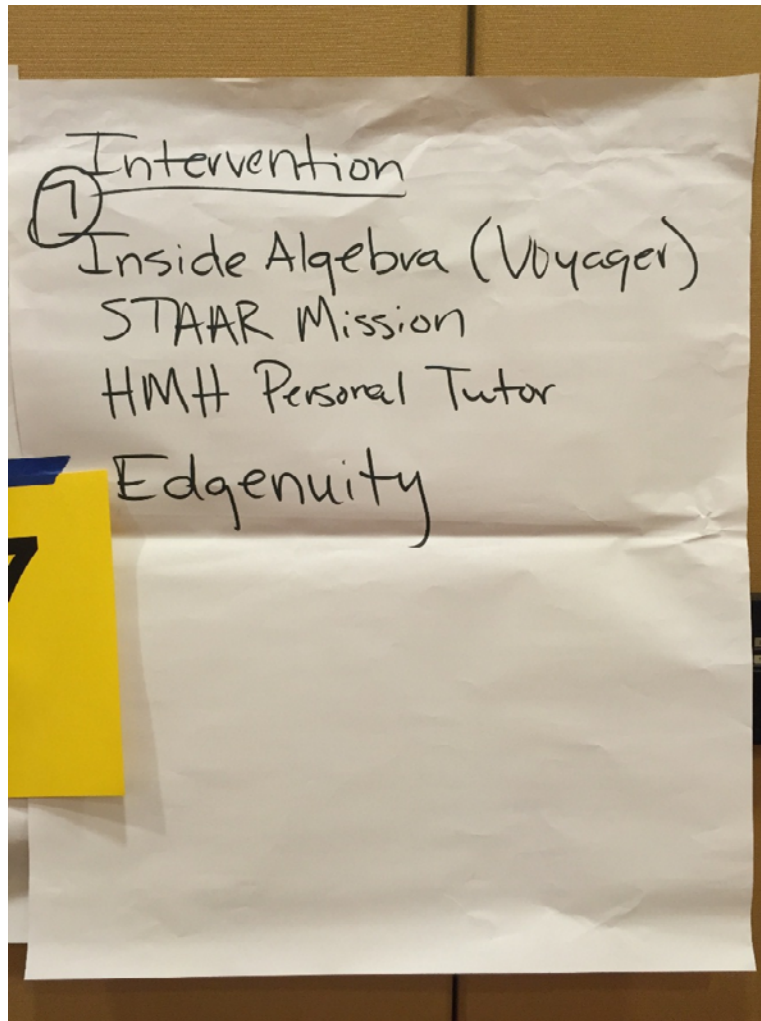 Intervention
7
Inside Algebra (Voyager)
STAAR Mission
HMH Personal Tutor
Edgenuity
7